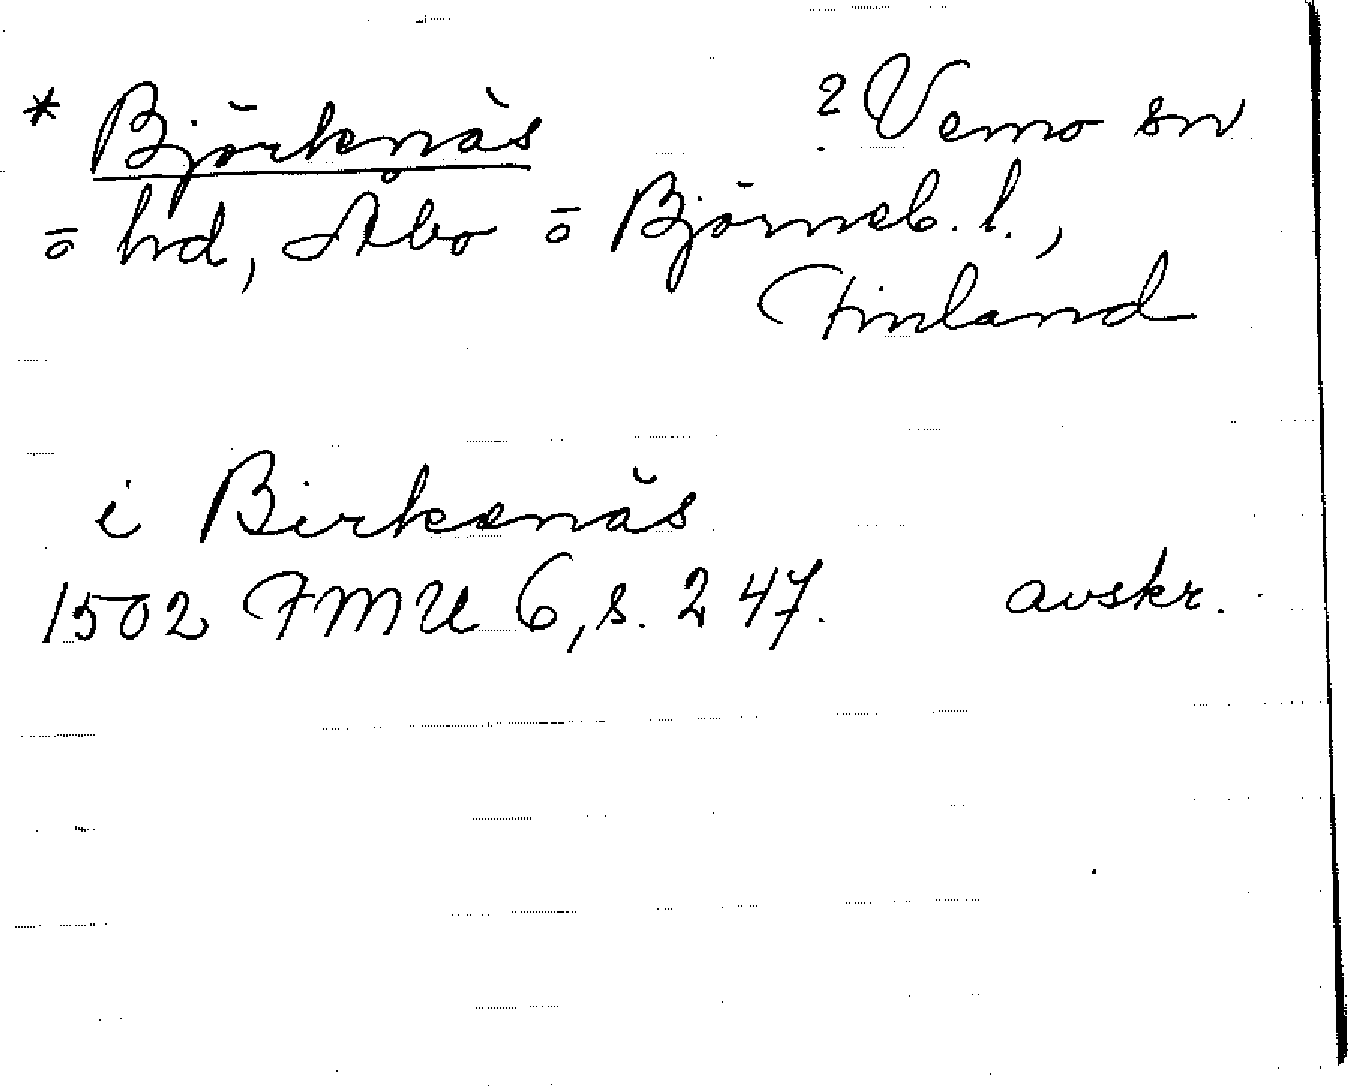 * Björkenäs ? Vemo sn
o hd, Åbo o Björneb. l.,
Finland
i Birkenäs
1502 FMU 6, s. 247. avskr.